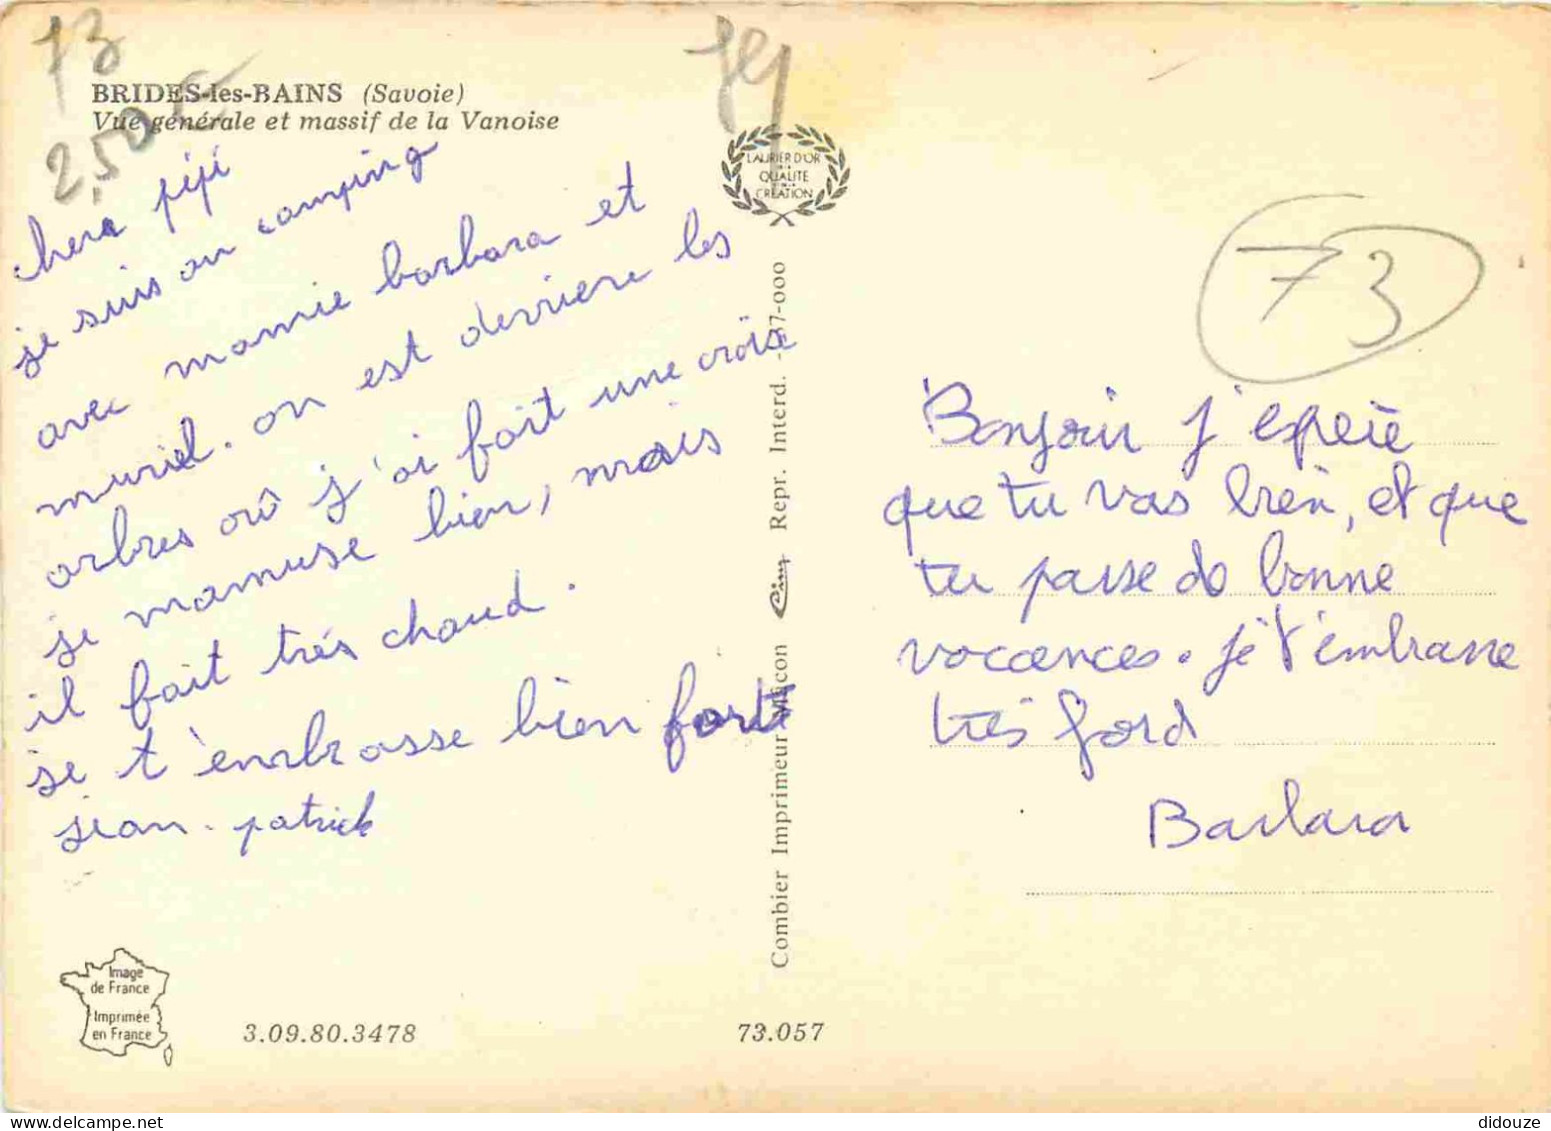 73
2,50 €
BRIDES-les-BAINS (Savoie)
Vue générale et massif de la Vanoise
chere pipi
je suis au camping
avec mamie barbara et
muriel. on est derriere les
arbres où j'ai fait une croix
je mamuse bien, mais
il fait très chaud.
je t'embrasse bien fort
jean-patrick
Image
de France
Imprimée
en France
3.09.80.3478
73.057
LAURIER D'OR
DE LA
QUALITÉ
DE LA
CRÉATION
Combier Imprimeur Mâcon Cim Repr. Interd. - 37-000
73
Bonjour j'espère
que tu vas bien, et que
tu passe de bonne
vacances. je t'embrasse
très ford
Barbara
didouze